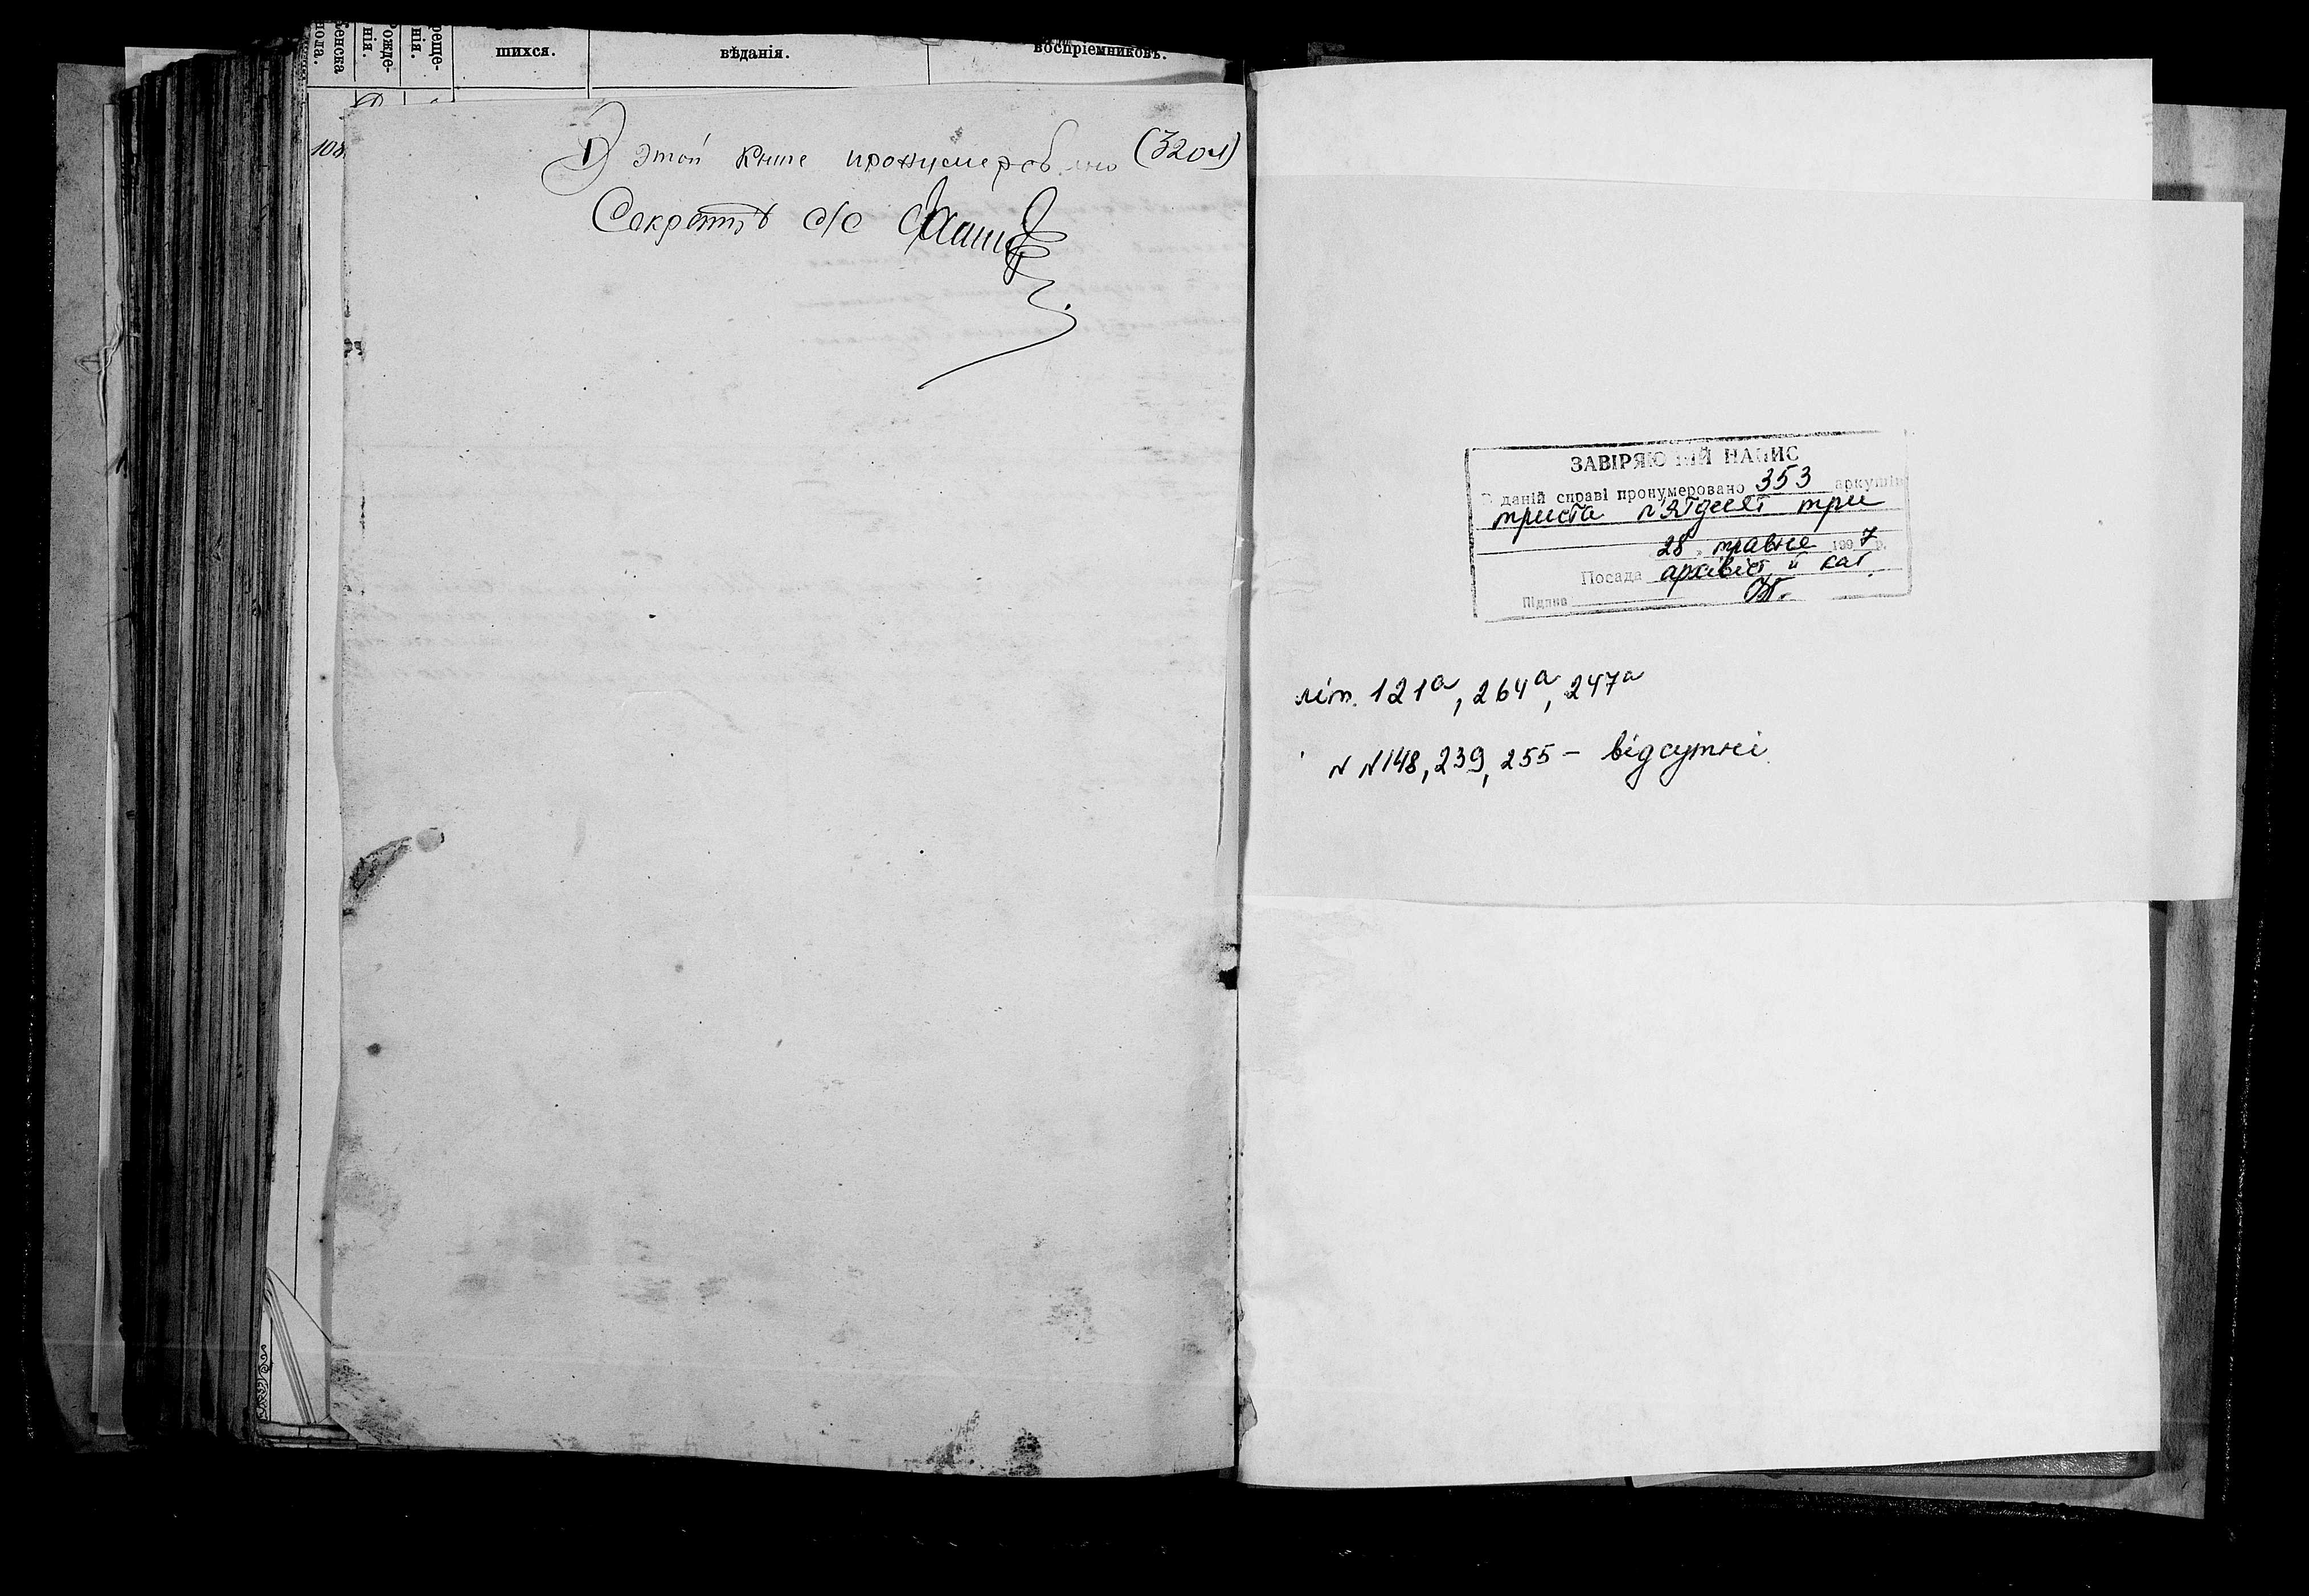 шихся.
вѣданія.
воспріемниковъ.
108
В этой книге пронумеровано (320л)
Секретарь с/с
ЗАВІРЯЮЧИЙ НАПИС
В даній справі пронумеровано 353 аркушів
триста п'ятдесят три
28 травня 1997 р.
Посада архівіст II кат.
Підпис
літ. 121а, 264а, 247а
N N 148, 239, 255 – відсутні.